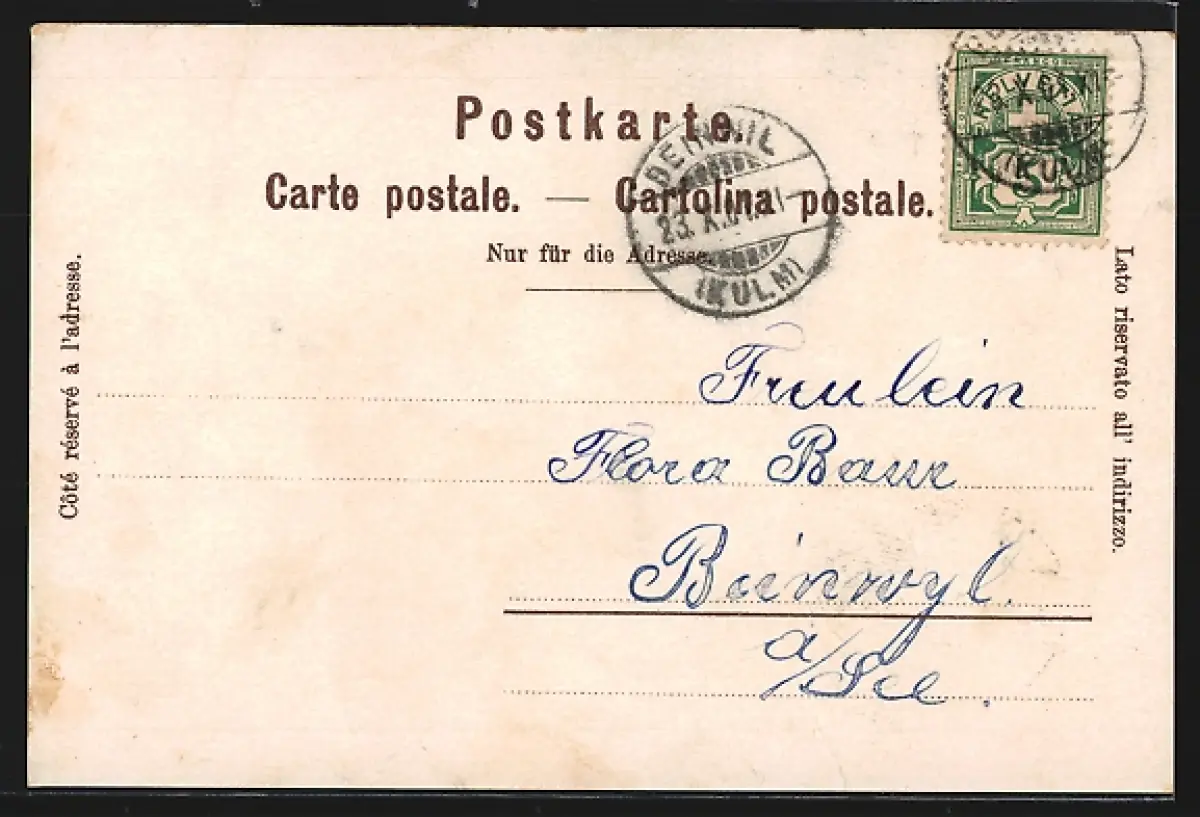 Postkarte.
Carte postale. — Cartolina postale.
Nur für die Adresse.
Côté réservé à l'adresse.
Lato riservato all' indirizzo.
HELVETIA
5
(KULM)
23. X
(KULM)
Freulein
Flora Baur
Beinwyl.
a/See.